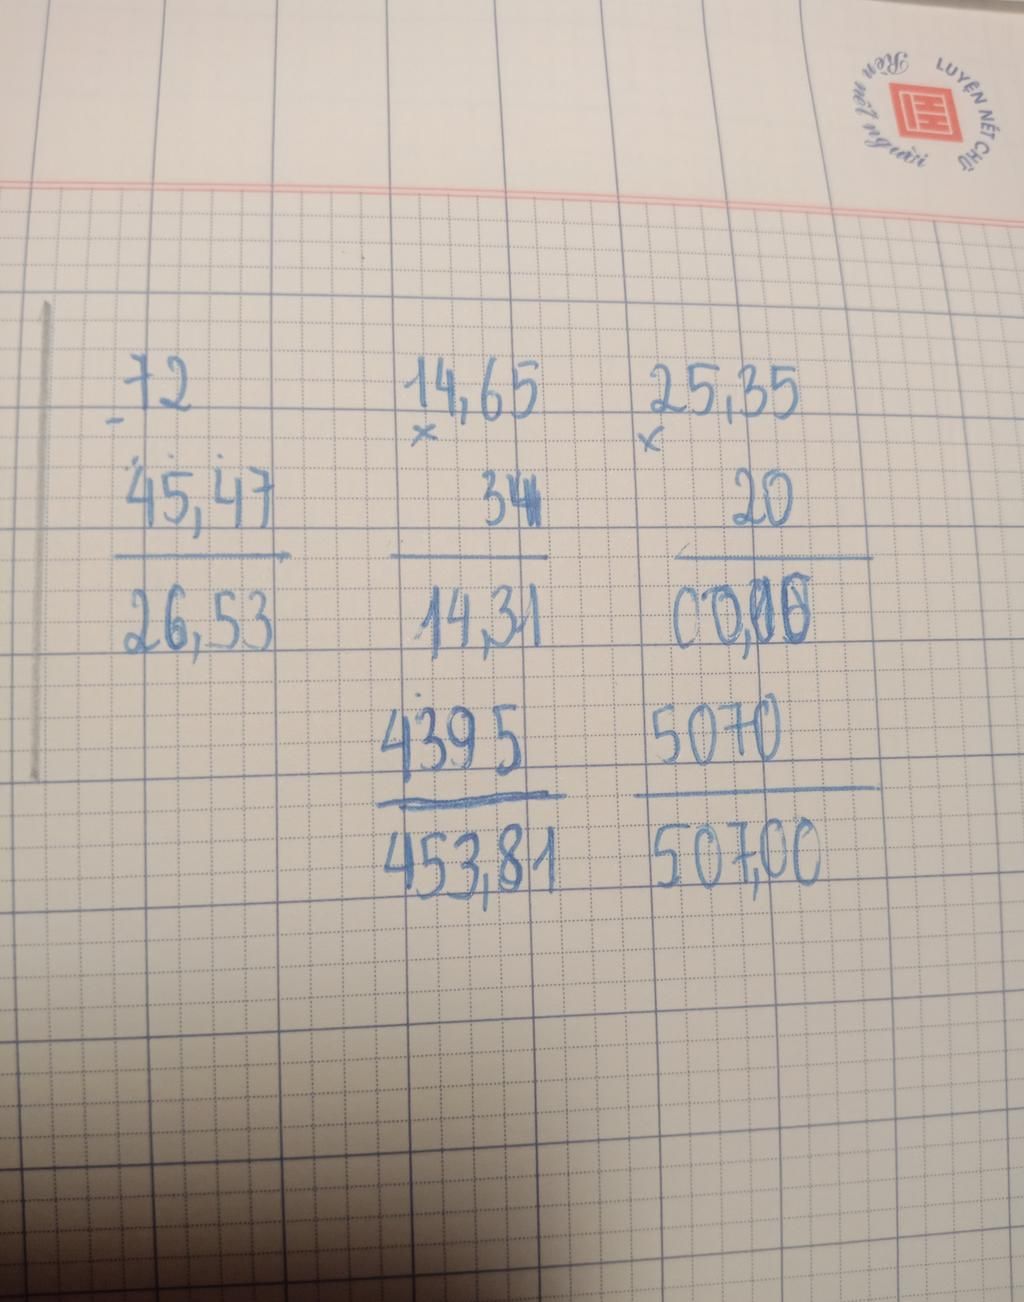 LUYỆN NÉT CHỮ
Rèn nết người
72
-
45,47
26,53
14,65
x
34
14,31
4395
453,81
25,35
x
20
5070
507,00